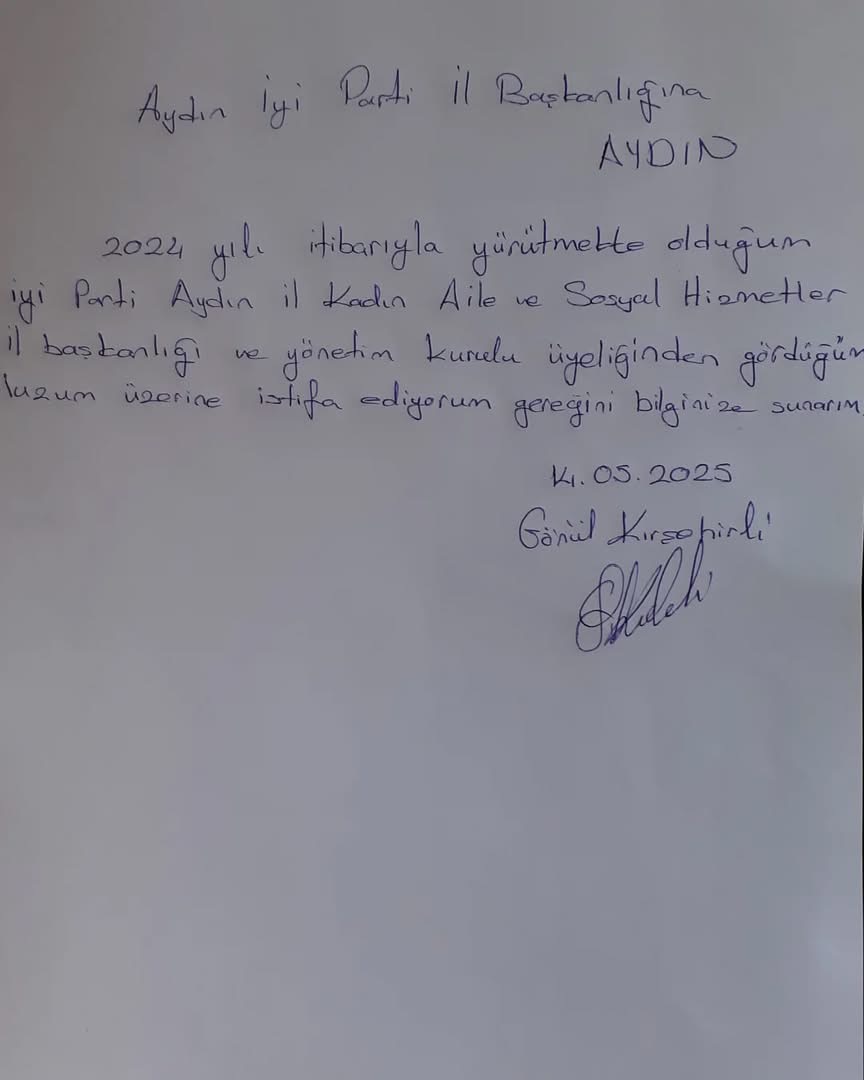 Aydın İyi Parti İl Başkanlığına
AYDIN
2024 yılı itibarıyla yürütmekte olduğum
iyi Parti Aydın il Kadın Aile ve Sosyal Hizmetler
il başkanlığı ve yönetim kurulu üyeliğinden gördüğüm
luzum üzerine istifa ediyorum gereğini bilginize sunarım
05.2025
Gönül Kırşehirli